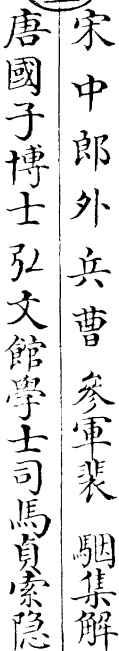 宋中郎外兵曹參軍裴駰集解
唐國子博士弘文館學士司馬貞索隐